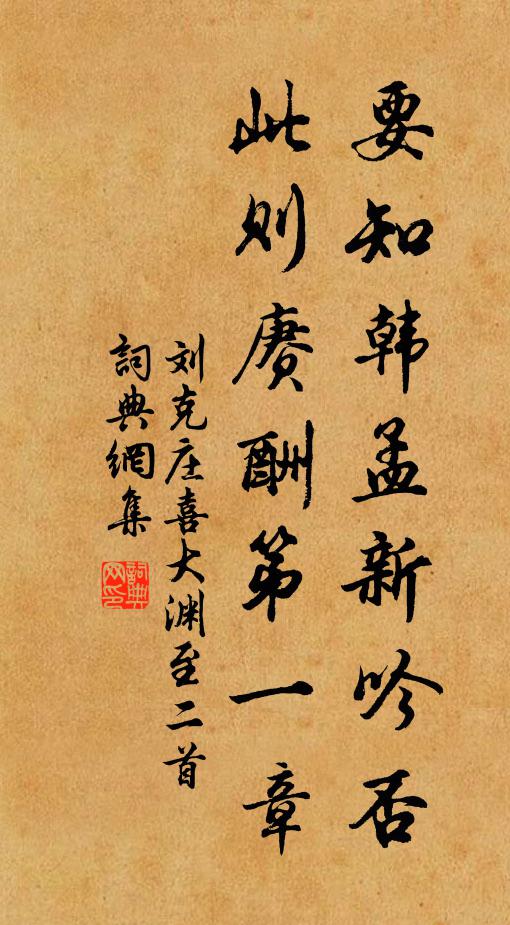 要知韩孟新吟否
此则赓酬第一章
刘克庄喜大渊至二首
詞典網集
詞典网印